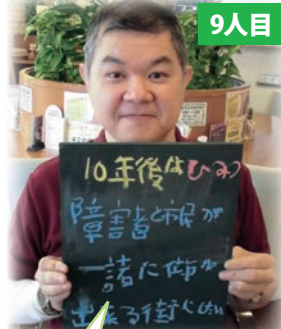 9人目
10年後はひみつ
障害者と市民が
一諸に働が
出来る街にしたい